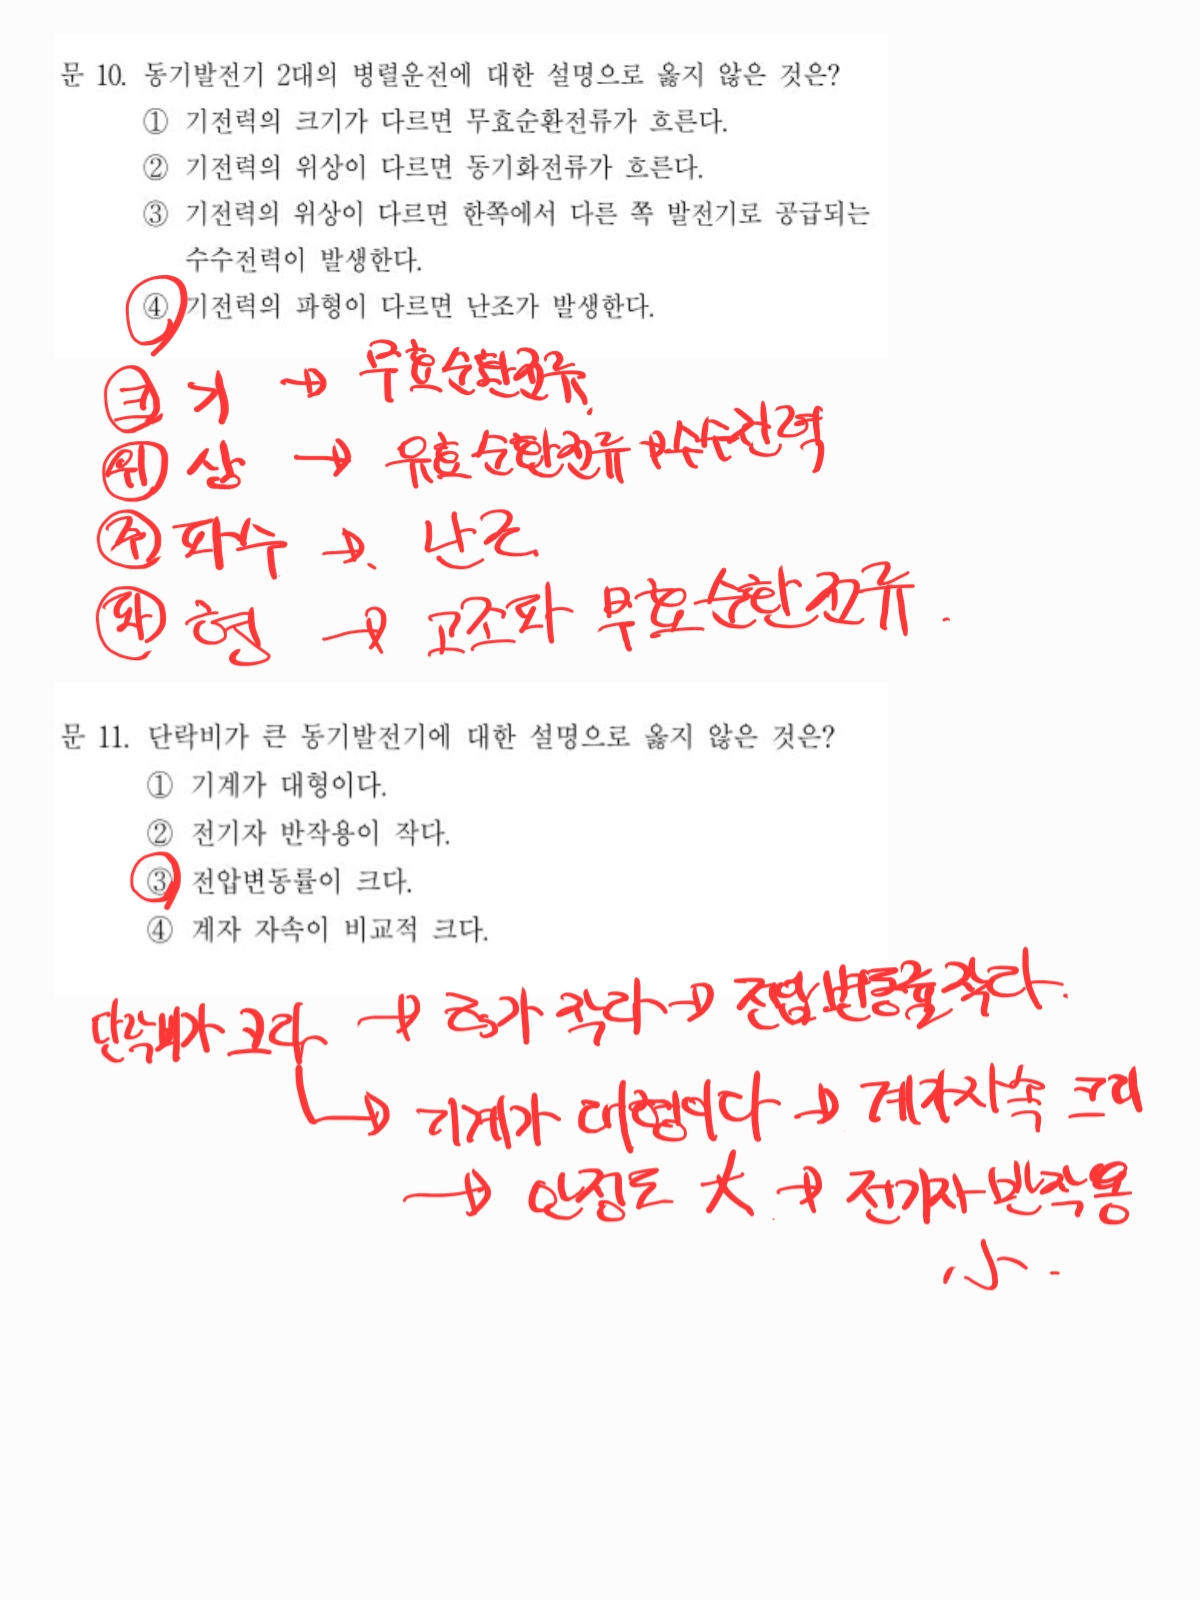 문 10. 동기발전기 2대의 병렬운전에 대한 설명으로 옳지 않은 것은?
① 기전력의 크기가 다르면 무효순환전류가 흐른다.
② 기전력의 위상이 다르면 동기화전류가 흐른다.
③ 기전력의 위상이 다르면 한쪽에서 다른 쪽 발전기로 공급되는
수수전력이 발생한다.
④ 기전력의 파형이 다르면 난조가 발생한다.
크기 → 무효순환전류.
위상 → 유효순환전류 → 수수전력
주파수 → 난조
파형 → 고조파 무효순환전류.
문 11. 단락비가 큰 동기발전기에 대한 설명으로 옳지 않은 것은?
① 기계가 대형이다.
② 전기자 반작용이 작다.
③ 전압변동률이 크다.
④ 계자 자속이 비교적 크다.
단락비가 크다 → 가 작다 → 전압변동률 작다.
→ 기계가 대형이다 → 계자자속 크다
→ 안정도 大 → 전기자반작용
小.